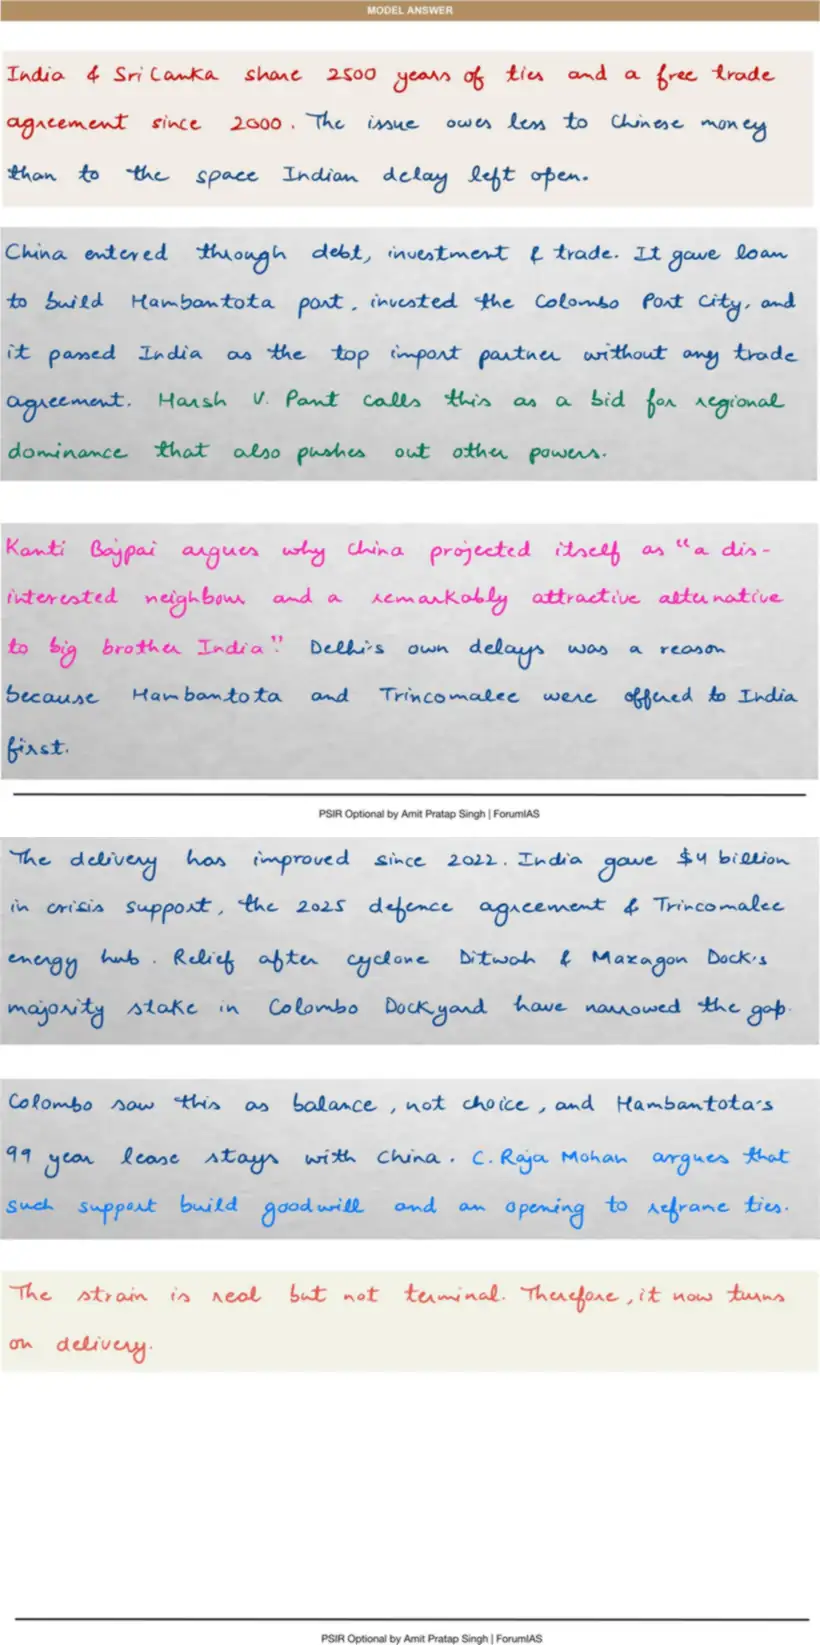 MODEL ANSWER
India & Sri Lanka share 2500 years of ties and a free trade
agreement since 2000. The issue owes less to Chinese money
than to the space Indian delay left open.
China entered through debt, investment & trade. It gave loan
to build Hambantota port, invested the Colombo Port City, and
it passed India as the top import partner without any trade
agreement. Harsh V. Pant calls this as a bid for regional
dominance that also pushes out other powers.
Kanti Bajpai argues why China projected itself as "a dis-
interested neighbour and a remarkably attractive alternative
to big brother India". Delhi's own delays was a reason
because Hambantota and Trincomalee were offered to India
first.
PSIR Optional by Amit Pratap Singh | ForumIAS
The delivery has improved since 2022. India gave $4 billion
in crisis support, the 2025 defence agreement & Trincomalee
energy hub. Relief after cyclone Ditwah & Mazagon Dock's
majority stake in Colombo Dockyard have narrowed the gap.
Colombo saw this as balance, not choice, and Hambantota's
99 year lease stays with China. C. Raja Mohan argues that
such support build goodwill and an opening to reframe ties.
The strain is real but not terminal. Therefore, it now turns
on delivery.
PSIR Optional by Amit Pratap Singh | ForumIAS